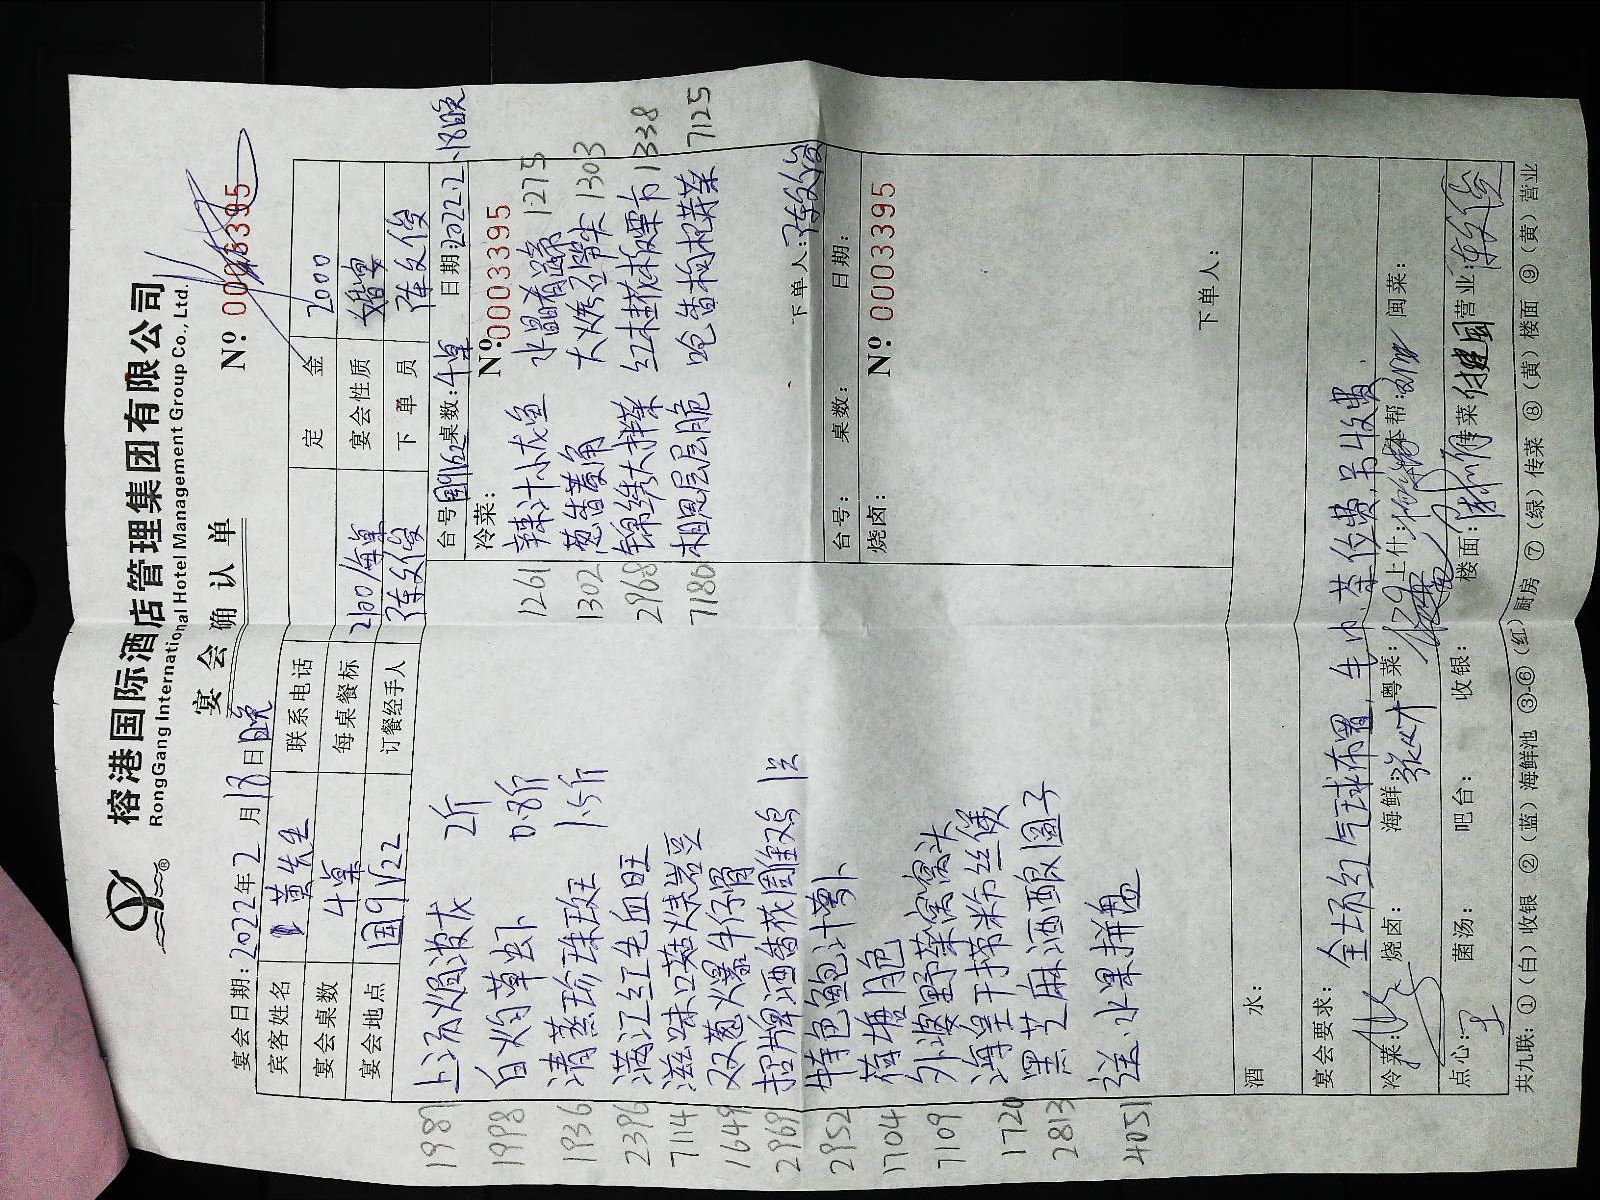 榕港国际酒店管理集团有限公司
RongGang International Hotel Management Group Co., Ltd.
宴会确认单
宴会日期:2022年2月18日晚 Nº 0003395
宾客姓名 黄先生 联系电话 定金 2000
宴会桌数 4桌 每桌餐标 2100/每桌 宴会性质 婚宴
宴会地点 国9 1/22 订餐经手人 陈文俊 下单员 陈文俊
1987 上汤焗波龙 2斤
1998 白灼草虾 0.8斤
1936 清蒸珍珠斑 1.5斤
2396 满江红毛血旺
7114 滋味口菇烧岩豆
1649 双葱爆牛仔骨
2969 招牌酒香茂周雄鸡 1只
2952 特色鲍汁萝卜
1704 荷塘月色
7109 外婆野菜窝窝头
1720 海皇干捞粉丝煲
2813 黑芝麻酒酿圆子
4051 送:水果拼盘
台号:国9 1/22 桌数:4桌 日期:2022.2.18晚
冷菜: Nº 0003395
1261 辣汁小龙鱼 水晶肴蹄 1275
1302 葱香菱角 大烤五笋尖 1303
2968 锦绣大拌菜 红枣桂花板栗布 1338
7180 相思层层脆 呛香枸杞荠菜 7125
下单人:陈文俊
台号: 桌数: 日期:
烧卤: Nº 0003395
下单人:
酒水:
宴会要求: 全场红气球布置,毛巾、茶位费另收费.
冷菜: 烧卤: 海鲜: 粤菜: 上什: 本帮: 闽菜:
点心:王 菌汤: 吧台: 收银: 楼面: 传菜: 营业:陈文俊
共九联:①(白)收银 ②(蓝)海鲜池 ③-⑥(红)厨房 ⑦(绿)传菜 ⑧(黄)楼面 ⑨(黄)营业